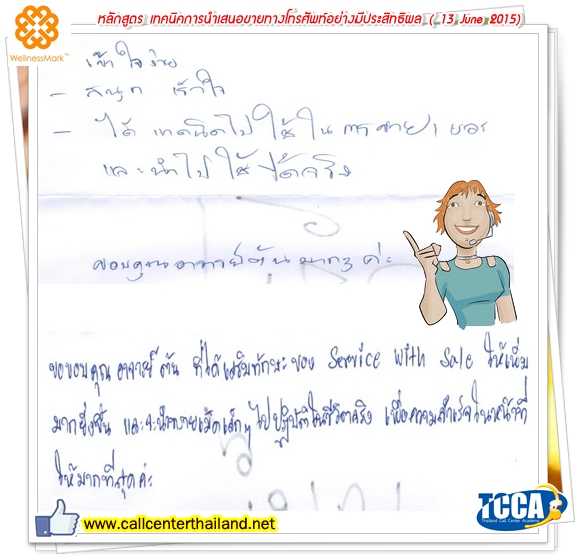 หลักสูตร เทคนิคการนำเสนอขายทางโทรศัพท์อย่างมีประสิทธิผล ( 13 June 2015)
WellnessMark™
เข้าใจง่าย
- สนุก เร้าใจ
- ได้ เทคนิคไปใช้ใน การขาย
และนำไปใช้ได้จริง
ขอบคุณอาจารย์ต้นมากๆ ค่ะ
ขอขอบคุณ อาจารย์ต้น ที่ได้เสริมทักษะของ Service with Sale ให้เพิ่ม
มากยิ่งขึ้น และจะนำ ไปปฏิบัติในชีวิตจริง เพื่อความสำเร็จในหน้าที่
ให้มากที่สุดค่ะ
www.callcenterthailand.net
TCCA
Thailand Call Center Academy